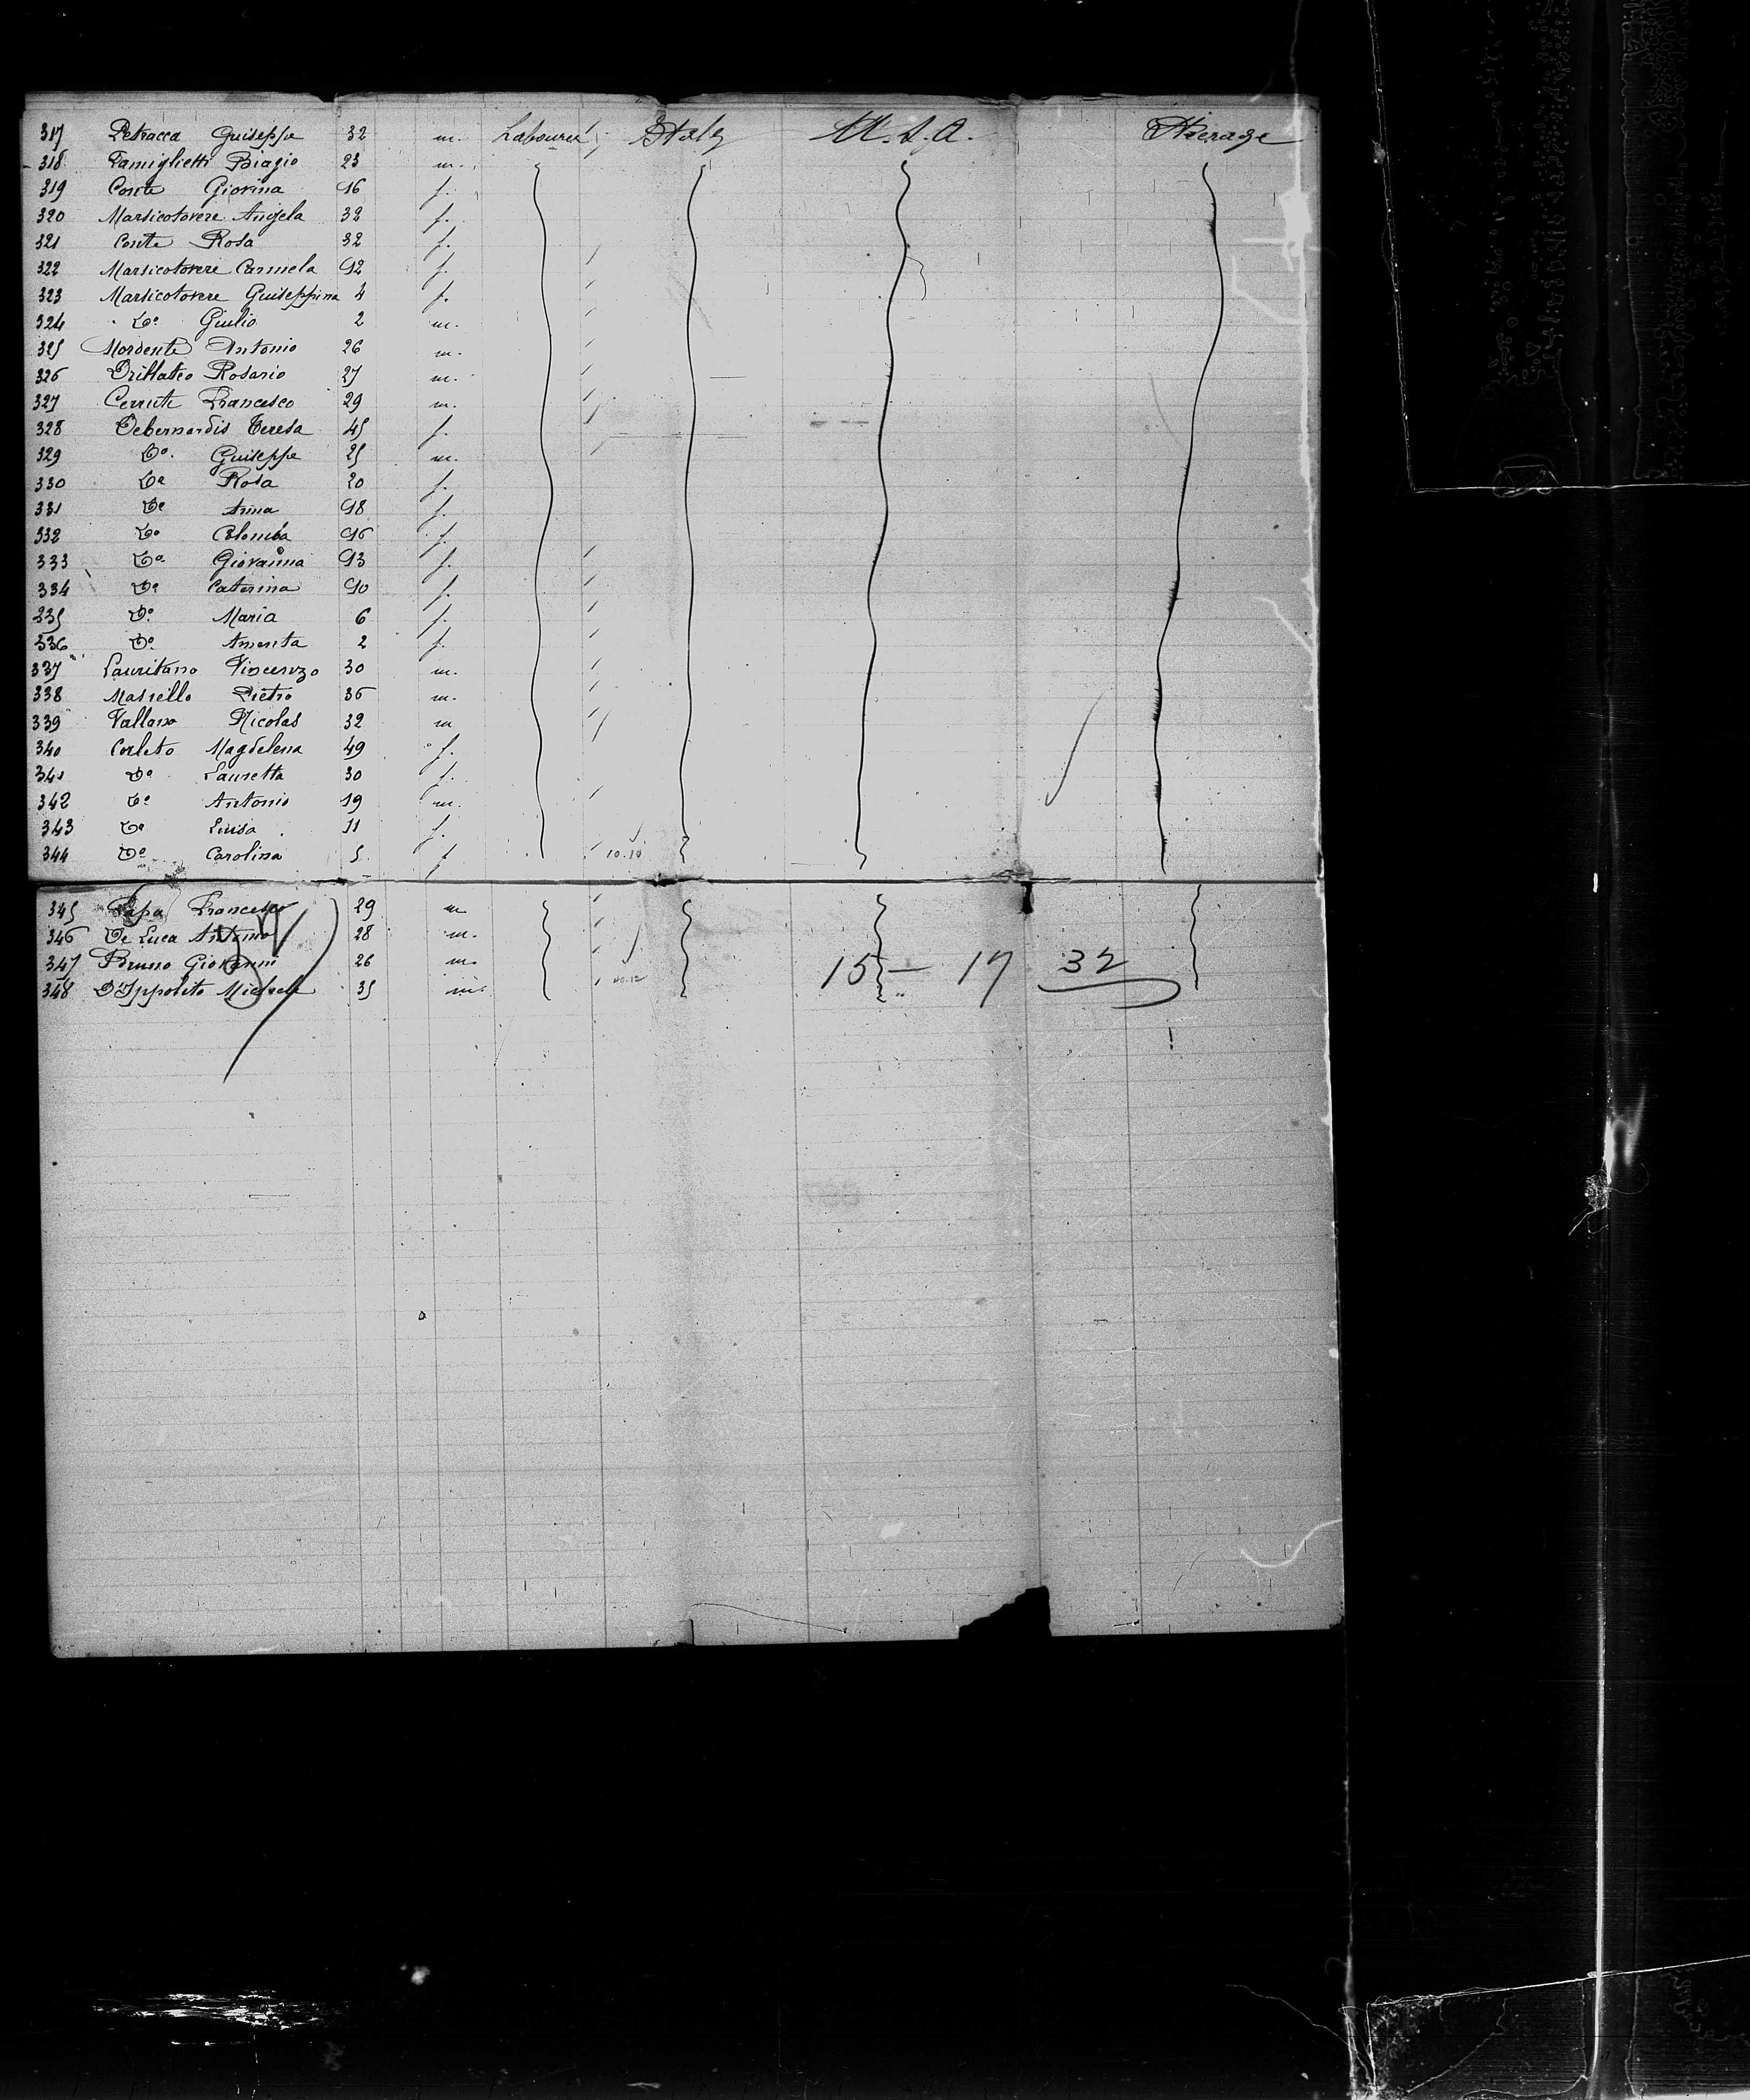 317 Petracca Guiseppe 32 m. Labourer Italy U.S.A. Steerage
318 Famiglietti Biagio 23 m.
319 Conte Giovina 16 f.
320 Marsicotovere Angela 32 f.
321 Conte Rosa 32 f.
322 Marsicotovere Carmela 12 f.
323 Marsicotovere Guiseppina 4 f.
324 Do Giulio 2 m.
325 Mordente Antonio 26 m.
326 Rosario 27 m.
327 Cerruti Francesco 29 m.
328 Debernardis Teresa 45 f.
329 Do. Guiseppe 25 m.
330 Do Rosa 20 f.
331 Do Anna 18 f.
332 Do Colomba 16 f.
333 Do Giovanna 13 f.
334 Do Caterina 10 f.
335 Do Maria 6 f.
336 Do 2 f.
337 Lauritano Vincenzo 30 m.
338 Massello Pietro 36 m.
339 Vallano Nicolas 32 m
340 Corleto Magdelena 49 f.
341 Do Lauretta 30 f.
342 Do Antonio 19 m.
343 Do Luisa 11 f.
344 Do Carolina 5 f 10.10
345 Papa Francesco 29 m
346 De Luca Antonio 28 m.
347 Bruno Giovanni 26 m.
348 D'Ippolito Michele 35 m.
15 — 17 32